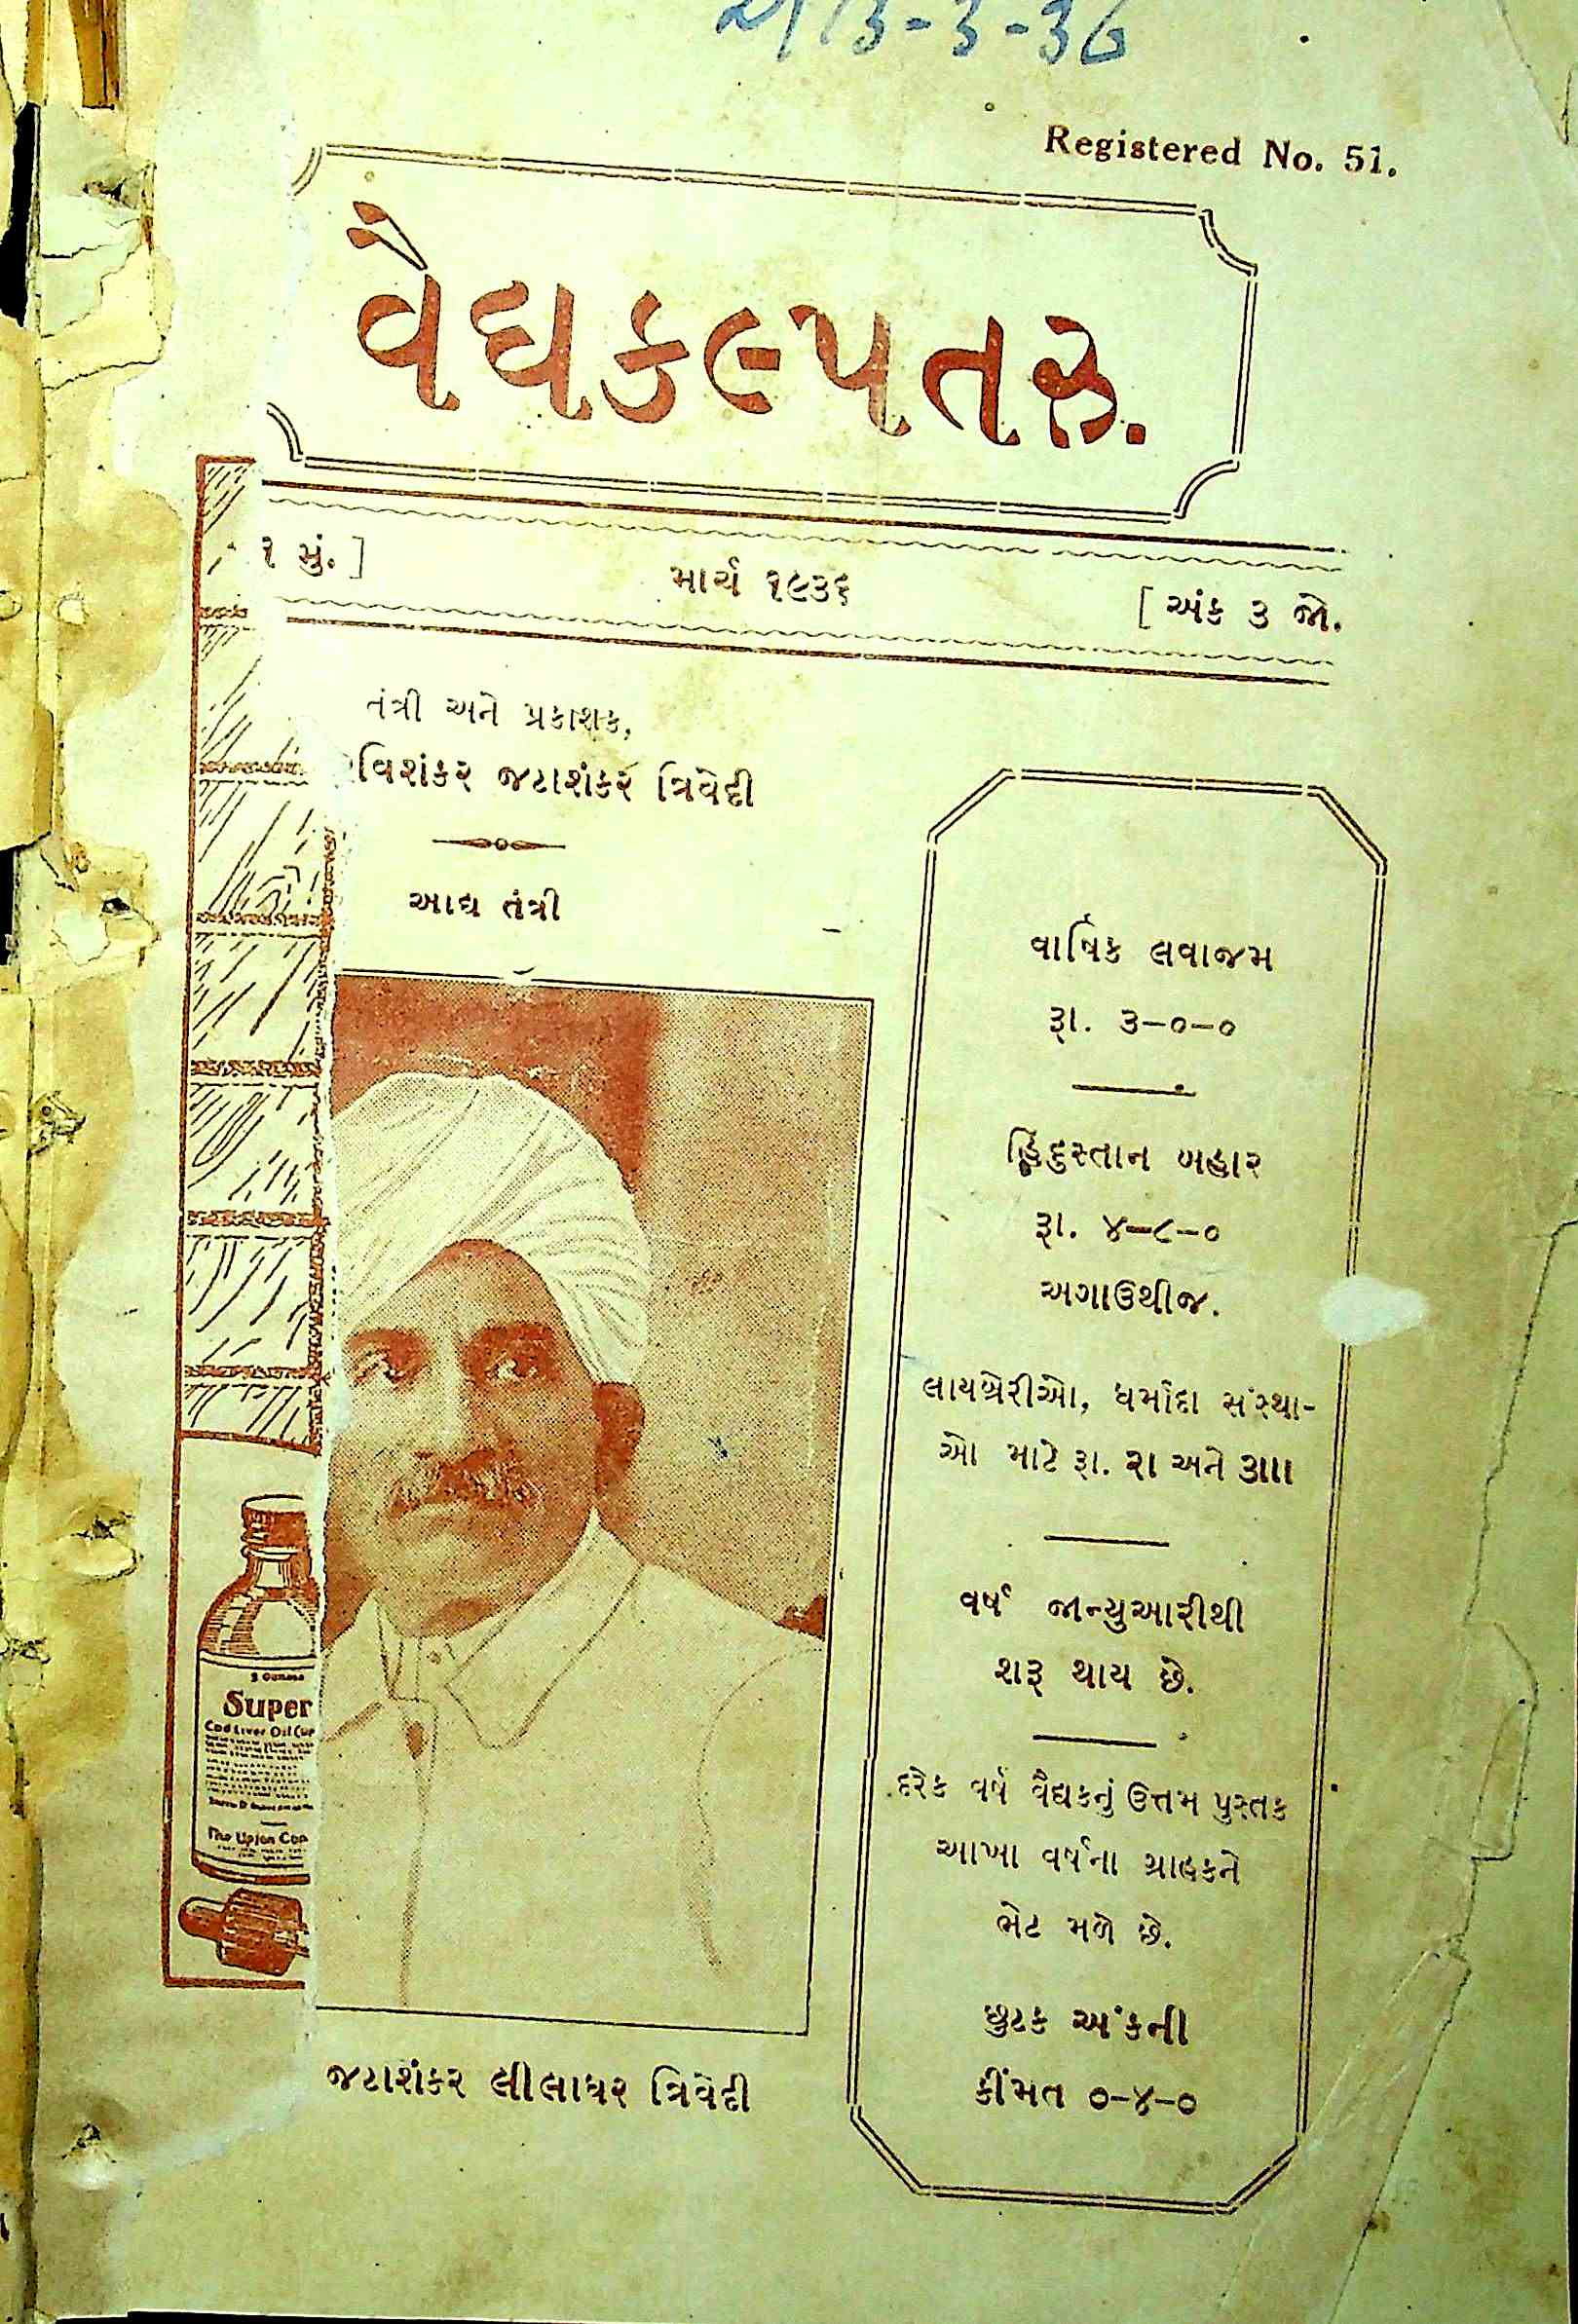 ૩-૩-૩૬
Registered No. 51.
વૈદ્યકલ્પતરુ.
૧ મું. ]
માર્ચ ૧૯૩૬
[ અંક ૩ જો.
તંત્રી અને પ્રકાશક,
વિશંકર જટાશંકર ત્રિવેદી
આદ્ય તંત્રી
જટાશંકર લીલાધર ત્રિવેદી
વાર્ષિક લવાજમ
રૂા. ૩-૦-૦
હિંદુસ્તાન બહાર
રૂા. ૪-૮-૦
અગાઉથીજ.
લાયબ્રેરીઓ, ધર્માદા સંસ્થા-
ઓ માટે રૂા. ૨ા અને ૩ાાા
વર્ષ જાન્યુઆરીથી
શરૂ થાય છે.
દરેક વર્ષે વૈદ્યકનું ઉત્તમ પુસ્તક
આખા વર્ષના ગ્રાહકને
ભેટ મળે છે.
છુટક અંકની
કીંમત ૦-૪-૦
Super
Cod Liver Oil
The Upjohn Com